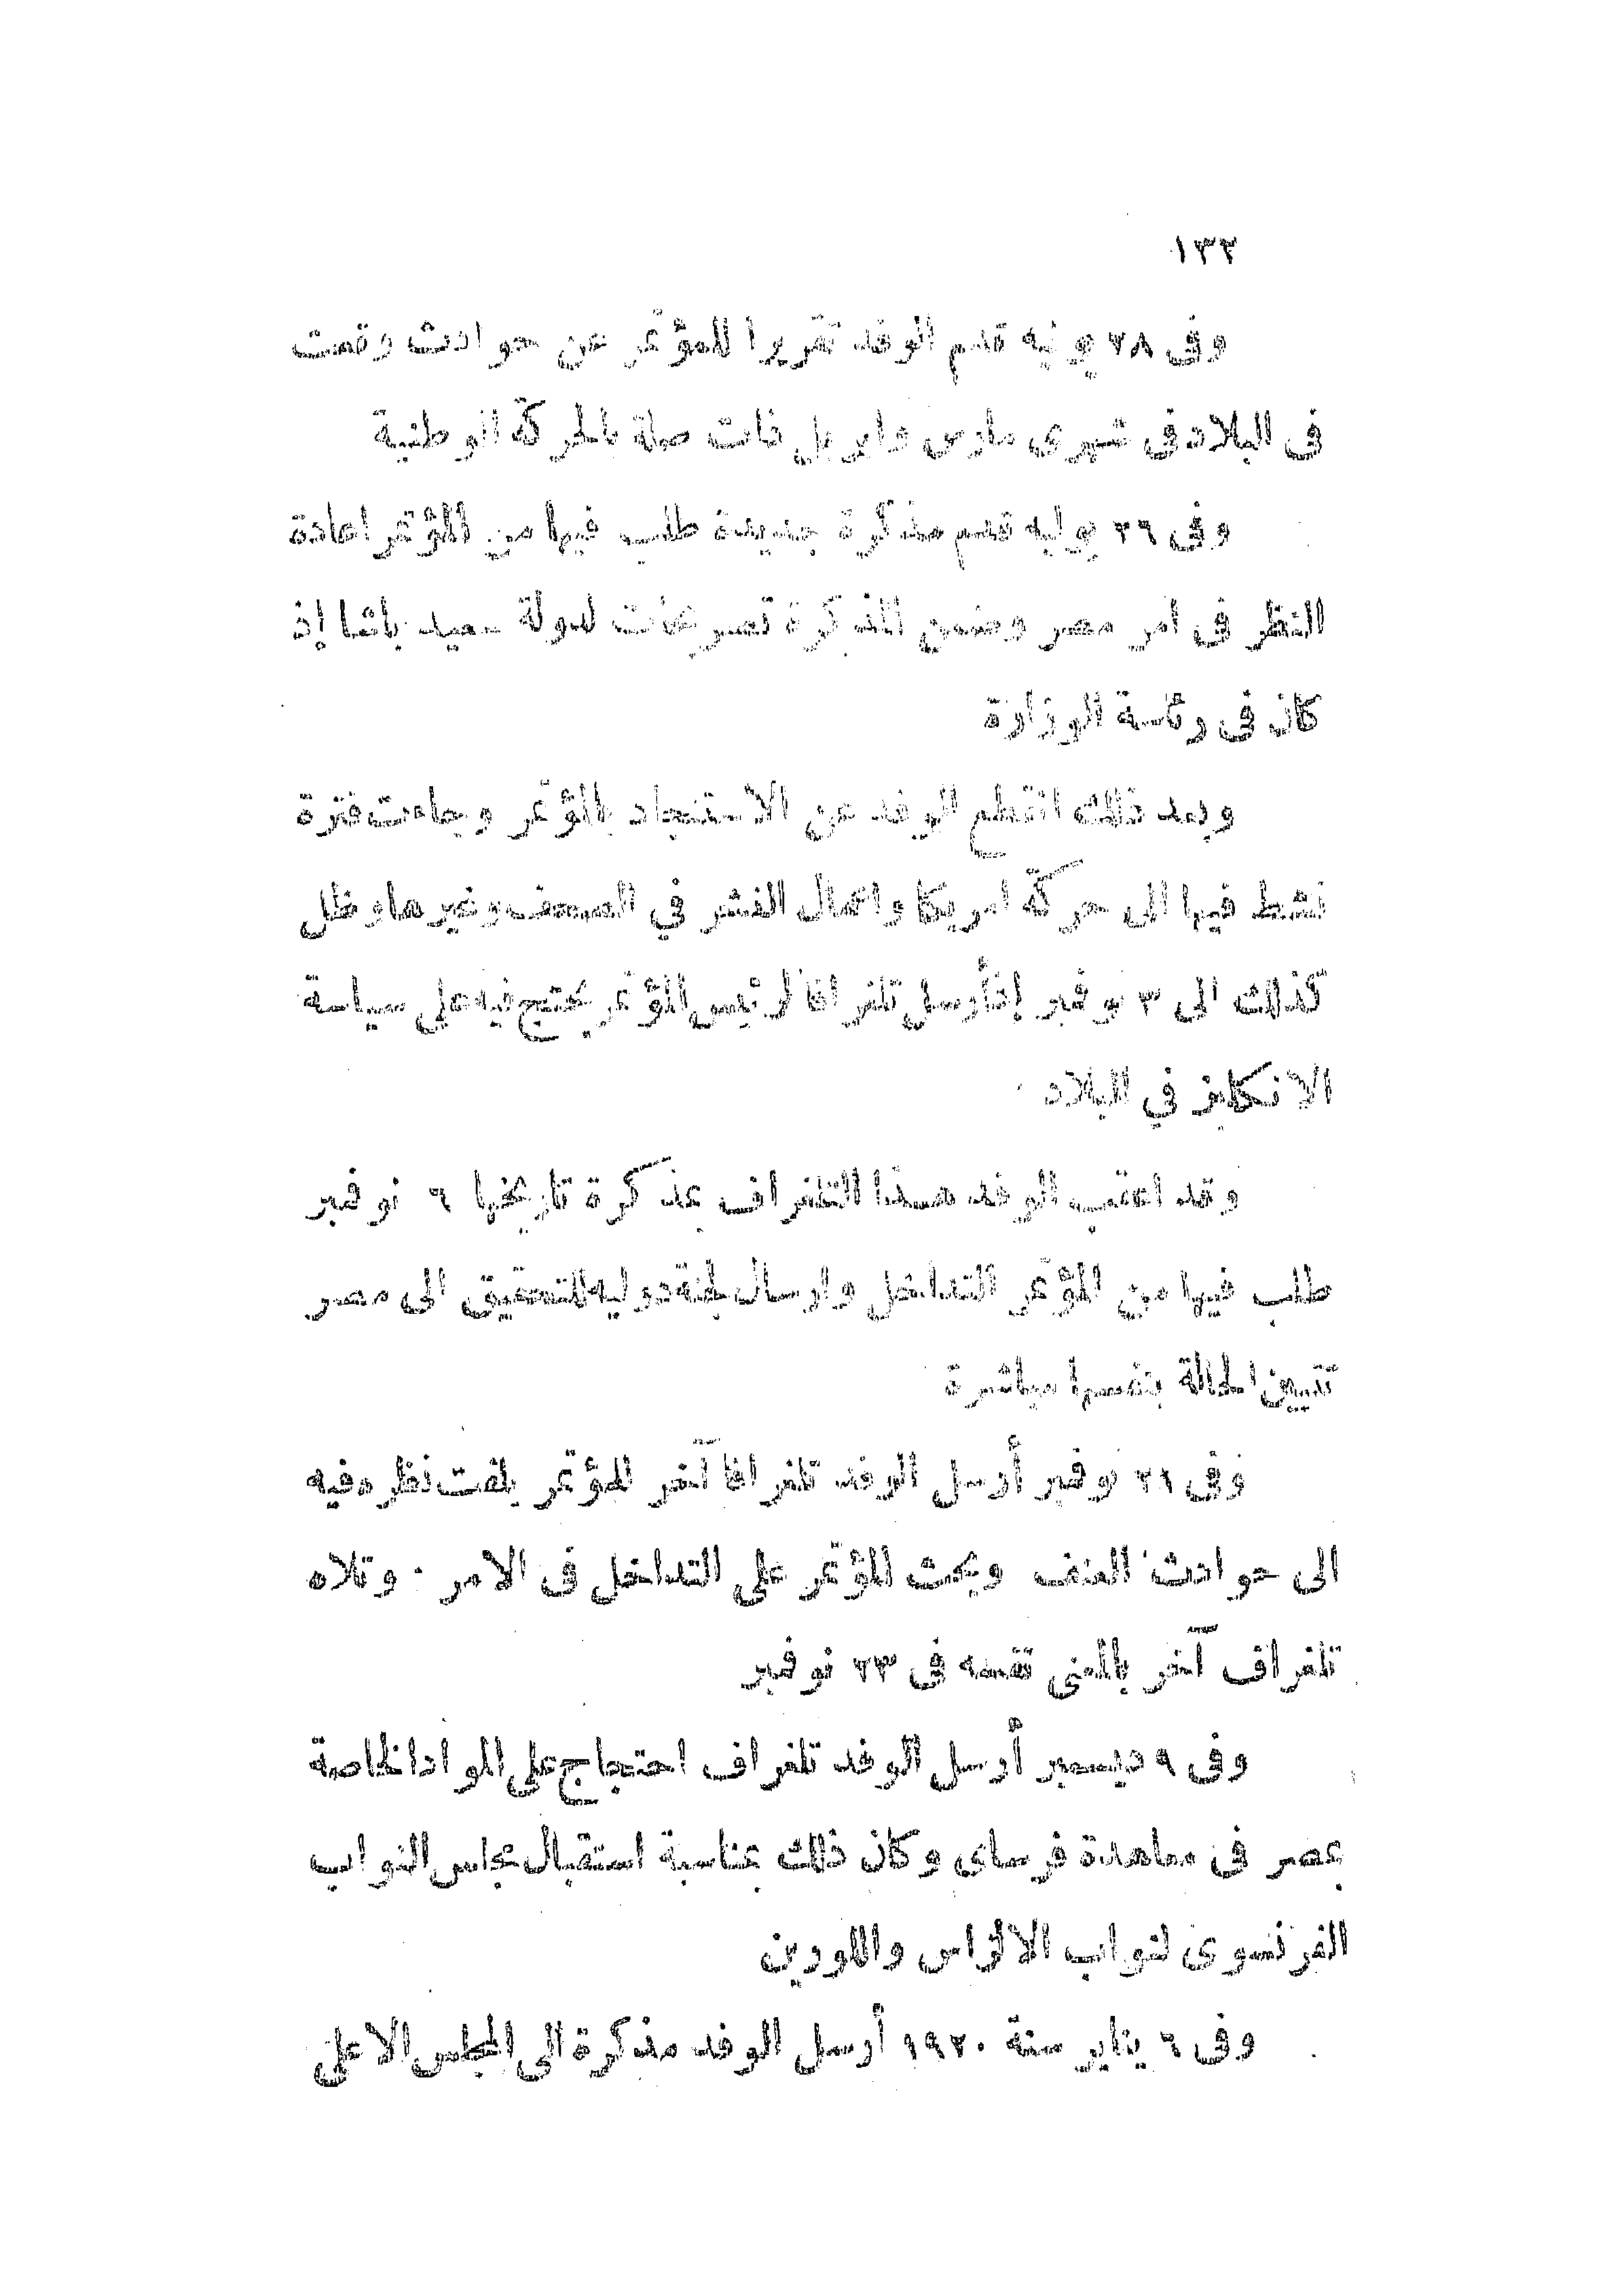 ١٣٢
وفى ٢٨ يونيه قدم الوفد تقريرا للمؤتمر عن حوادث وقعت
فى البلاد فى شهرى مارس وابريل ذات صلة بالحركة الوطنية
وفى ٢٩ يوليه قدم مذكرة جديدة طلب فيها من المؤتمر اعادة
النظر فى امر مصر وضمن المذكرة تصريحات لدولة سعيد باشا إذ
كان فى رئاسة الوزارة
وبعد ذلك انقطع الوفد عن الاستنجاد بالمؤتمر وجاءت فترة
نشط فيها الى حركة امريكا واعمال النشر في الصحف وغيرها وظل
كذلك الى ٣ نوفمبر إذ أرسل تلغرافا لرئيس المؤتمر يحتج فيه على سياسة
الانكليز في البلاد
وقد اعقب الوفد هذا التلغراف بمذكرة تاريخها ٦ نوفمبر
طلب فيها من المؤتمر التداخل وارسال لجنة دوليه للتحقيق الى مصر
تتبين الحالة بنفسها مباشرة
وفى ٢١ نوفمبر أرسل الوفد تلغرافا آخر للمؤتمر يلفت نظره فيه
الى حوادث العنف ويحث المؤتمر على التداخل فى الامر . وتلاه
تلغراف آخر بالمعنى نفسه فى ٢٣ نوفمبر
وفى ٩ ديسمبر أرسل الوفد تلغراف احتجاج على المواد الخاصة
بمصر فى معاهدة فرساى وكان ذلك بمناسبة استقبال مجلس النواب
الفرنسوى لنواب الالزاس واللورين
وفى ٦ يناير سنة ١٩٢٠ أرسل الوفد مذكرة الى المجلس الاعلى